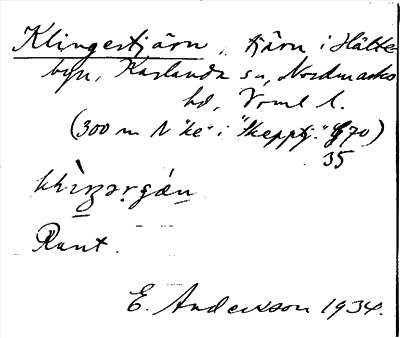 Klingertjärn, tjärn i Hälte
byn, Karlanda sn, Nordmarks
hd, Vrml l.
(300 m N "ke" i "Skepptj." G 70)
35
Runt.
E. Andersson 1934.